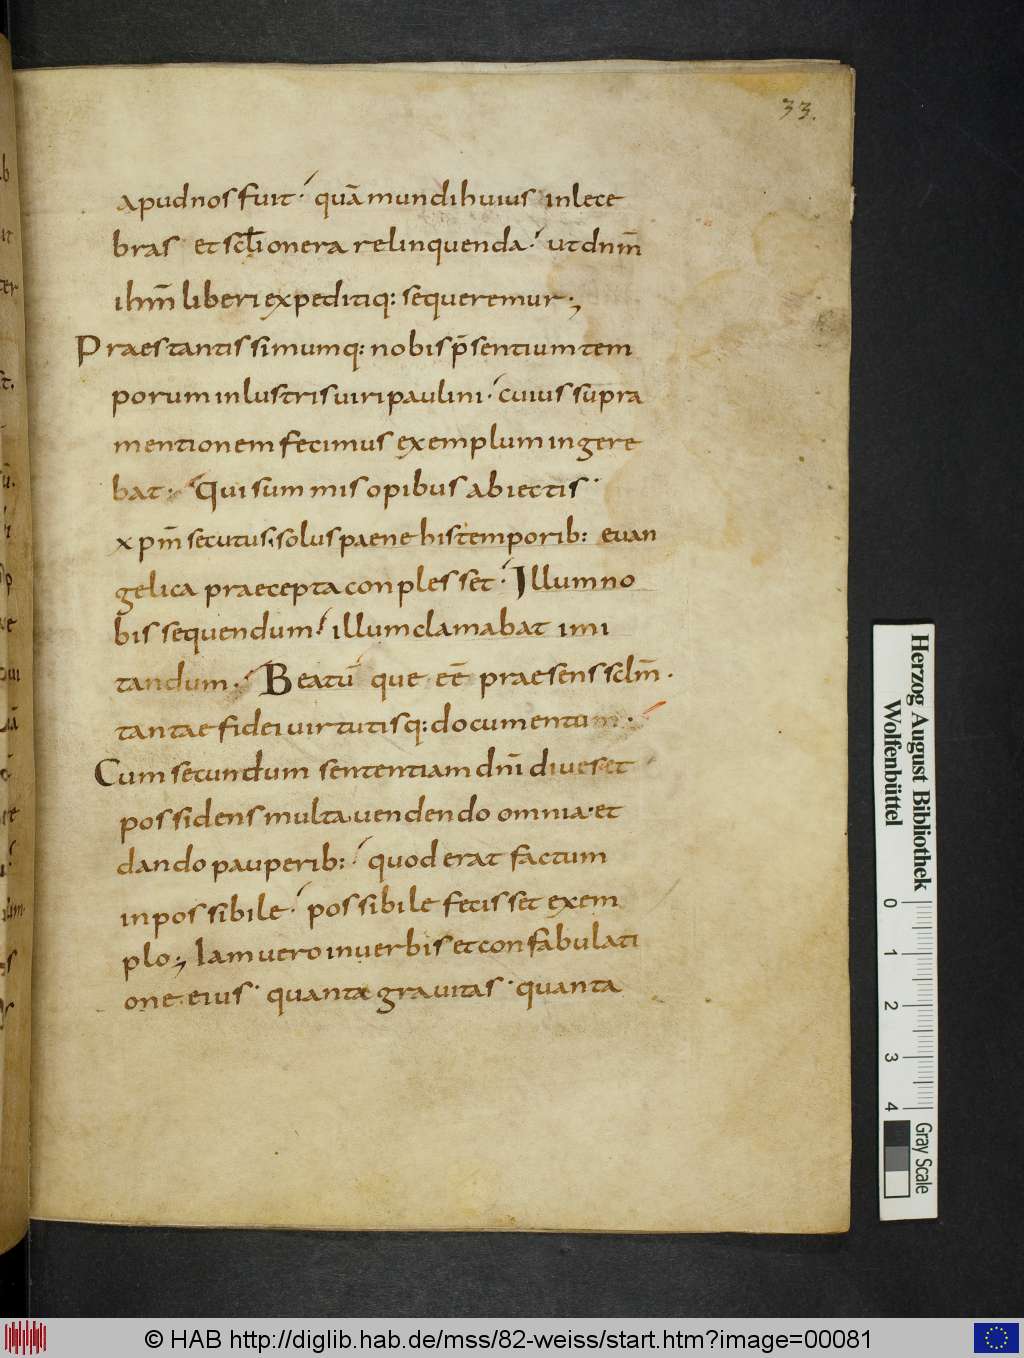 33.
apud nos fuit· quā mundi huius inlece
bras et scl̄i onera relinquenda· ut dnm̄
ihm̄ liberi expeditiq: sequeremur·,
Praestantissimumq: nobis p̄sentium tem
porum inlustris uiri paulini· cuius supra
mentionem fecimus exemplum ingere
bat· Qui summis opibus abiectis·
xpm̄ secutus· solus paene his temporib: euan
gelica praecepta conplesset· Illum no
bis sequendum· illum clamabat imi
tandum· Beatū que eē praesens sclm̄·
tantae fidei uirtutisq: documentum·
Cum secundum sententiam dnī diues et
possidens multa uendendo omnia· et
dando pauperib: · quod erat factum
inpossibile· possibile fecisset exem
plo·, Iam uero in uerbis et confabulati
one eius· quanta grauitas· quanta
Herzog August Bibliothek
Wolfenbüttel
0 1 2 3 4
Gray Scale
© HAB http://diglib.hab.de/mss/82-weiss/start.htm?image=00081